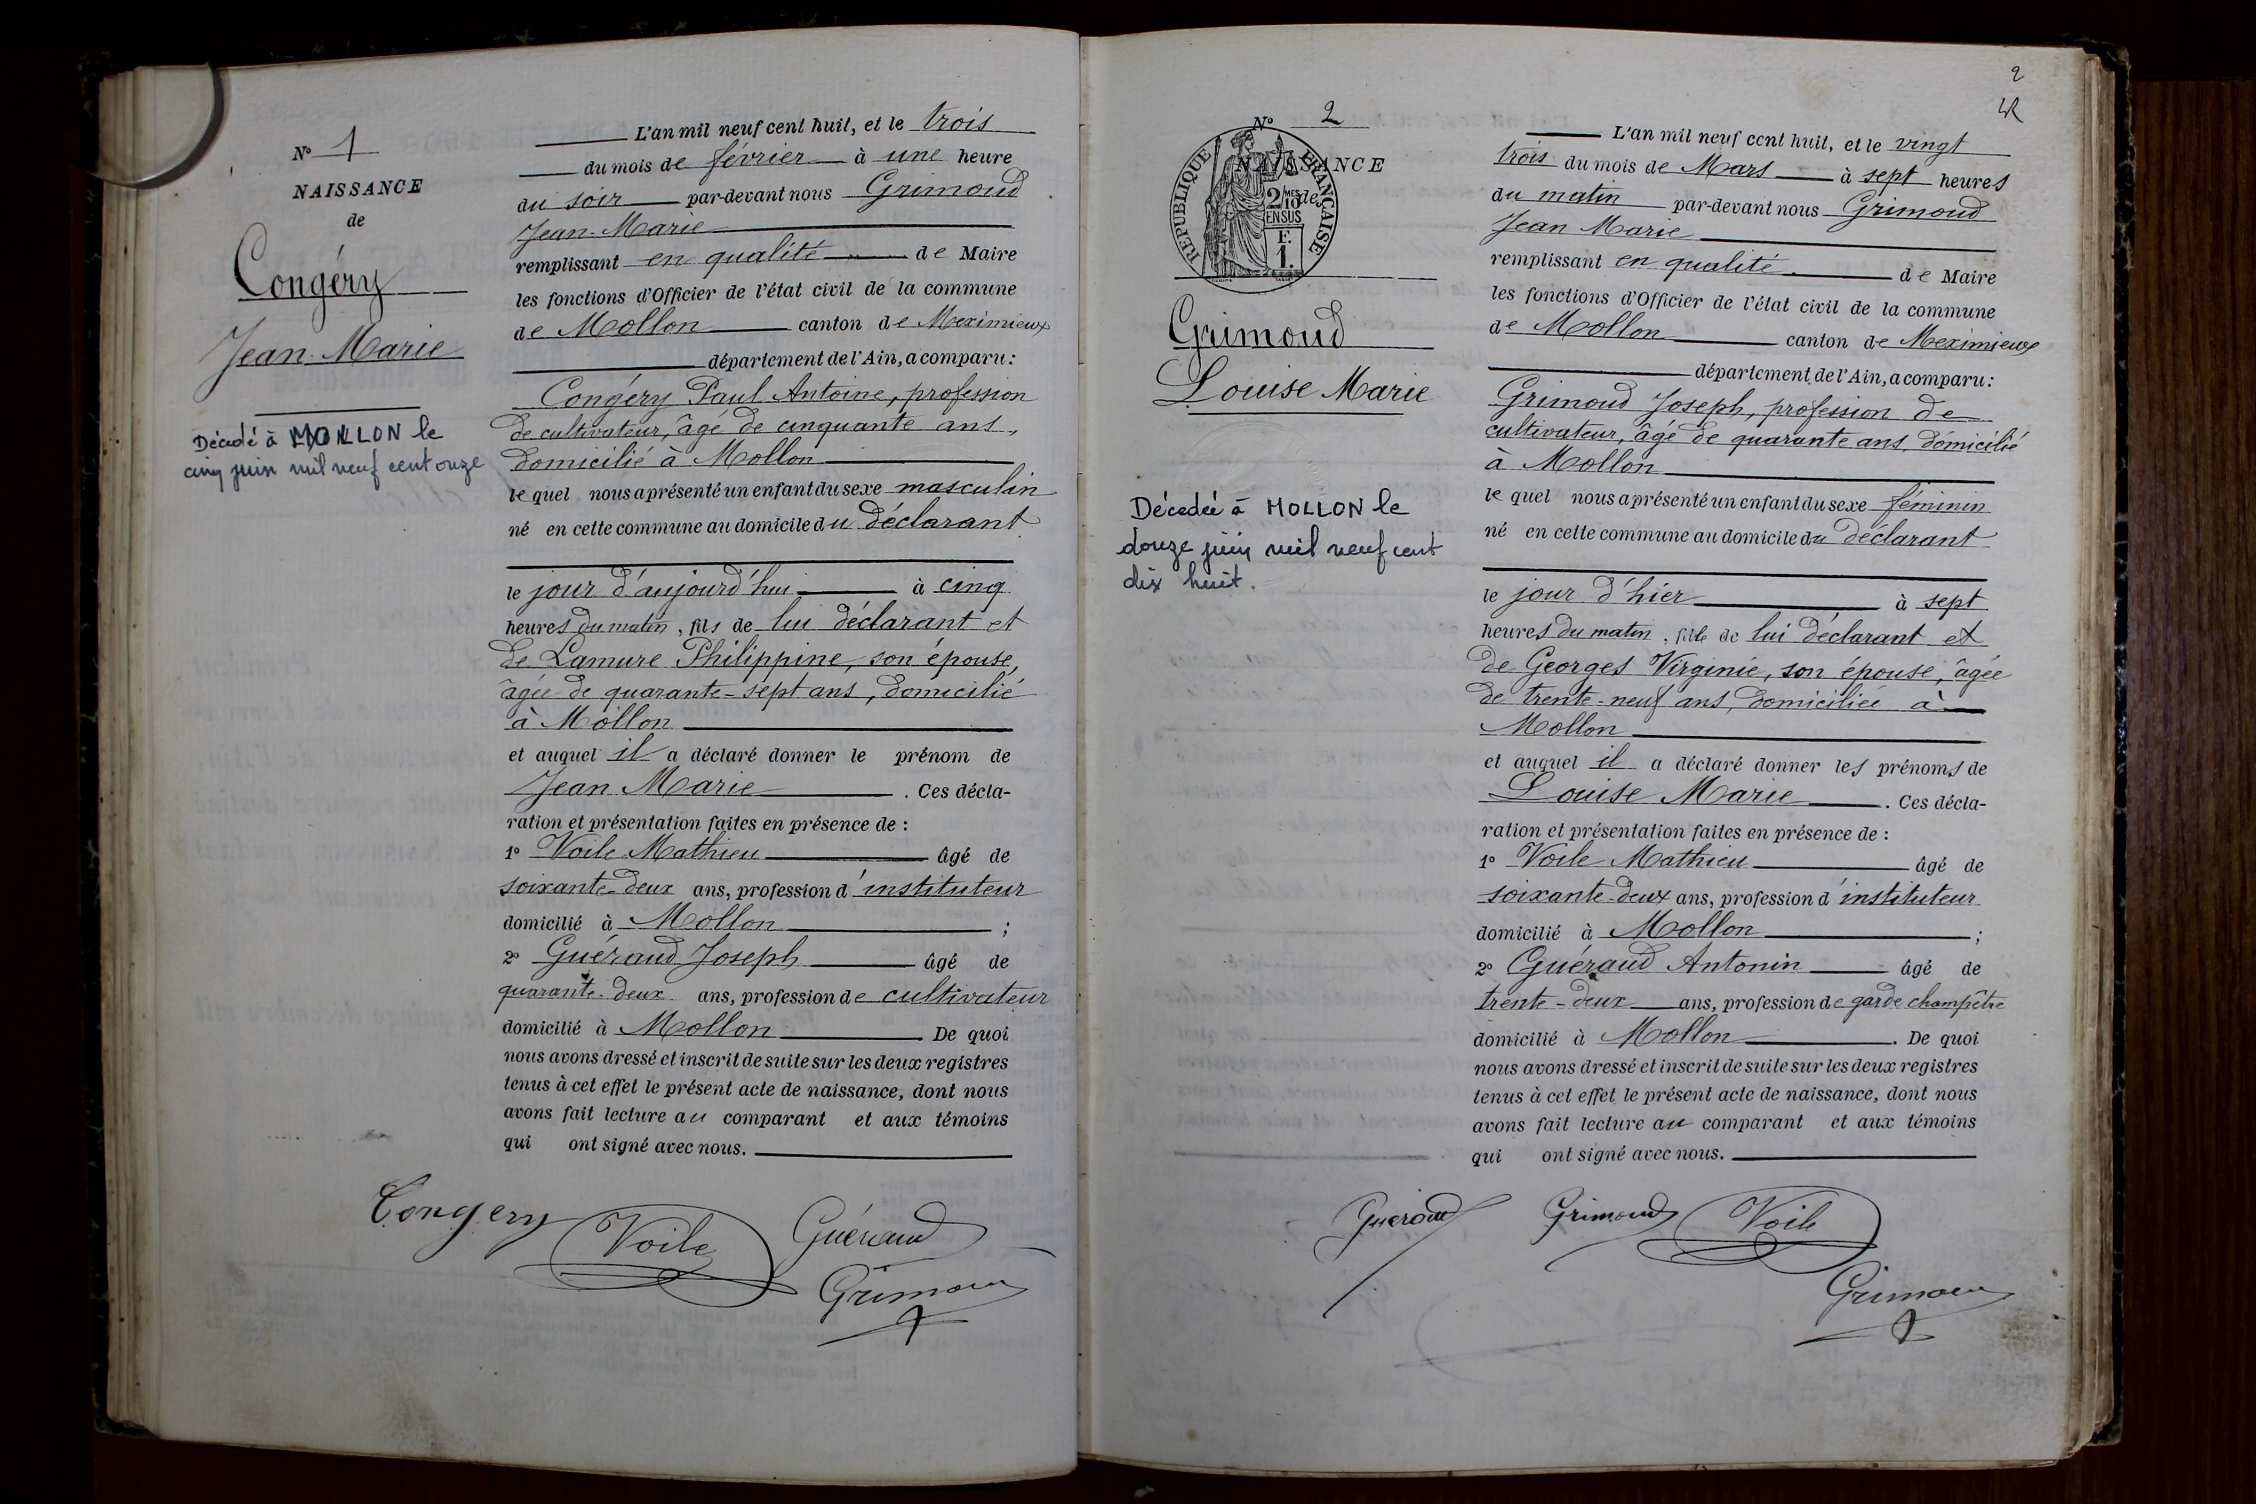 N° 1
NAISSANCE
de
Congéry
Jean-Marie
Décédé à MOLLON le
cinq juin mil neuf cent onze
L'an mil neuf cent huit, et le trois
du mois de février à une heure
du soir par-devant nous Grimoud
Jean-Marie
remplissant en qualité de Maire
les fonctions d'Officier de l'état civil de la commune
de Mollon canton de Meximieux
département de l'Ain, a comparu :
Congéry Paul Antoine, profession
de cultivateur, âgé de cinquante ans,
domicilié à Mollon
lequel nous a présenté un enfant du sexe masculin
né en cette commune au domicile du déclarant
le jour d'aujourd'hui à cinq
heures du matin, fils de lui déclarant et
de Lamure Philippine, son épouse,
âgée de quarante-sept ans, domicilié
à Mollon
et auquel il a déclaré donner le prénom de
Jean Marie. Ces décla-
ration et présentation faites en présence de :
1° Voile Mathieu âgé de
soixante-deux ans, profession d'instituteur
domicilié à Mollon ;
2° Guéraud Joseph âgé de
quarante-deux ans, profession de cultivateur
domicilié à Mollon De quoi
nous avons dressé et inscrit de suite sur les deux registres
tenus à cet effet le présent acte de naissance, dont nous
avons fait lecture au comparant et aux témoins
qui ont signé avec nous.
Congery Voile Guéraud
Grimoud
2
N° 2
NAISSANCE
de
RÉPUBLIQUE FRANÇAISE
2/10 MES
EN SUS
F.
1.
Grimoud
Louise Marie
Décédée à MOLLON le
douze juin mil neuf cent
dix huit.
L'an mil neuf cent huit, et le vingt
trois du mois de Mars à sept heures
du matin par-devant nous Grimoud
Jean Marie
remplissant en qualité de Maire
les fonctions d'Officier de l'état civil de la commune
de Mollon canton de Meximieux
département de l'Ain, a comparu :
Grimoud Joseph, profession de
cultivateur, âgé de quarante ans, domicilié
à Mollon
lequel nous a présenté un enfant du sexe féminin
né en cette commune au domicile du déclarant
le jour d'hier à sept
heures du matin, fille de lui déclarant et
de Georges Virginie, son épouse, âgée
de trente-neuf ans, domiciliée à
Mollon
et auquel il a déclaré donner les prénoms de
Louise Marie. Ces décla-
ration et présentation faites en présence de :
1° Voile Mathieu âgé de
soixante-deux ans, profession d'instituteur
domicilié à Mollon ;
2° Guéraud Antonin âgé de
trente-deux ans, profession de garde champêtre
domicilié à Mollon. De quoi
nous avons dressé et inscrit de suite sur les deux registres
tenus à cet effet le présent acte de naissance, dont nous
avons fait lecture au comparant et aux témoins
qui ont signé avec nous.
Gueraud Grimoud Voile
Grimoud